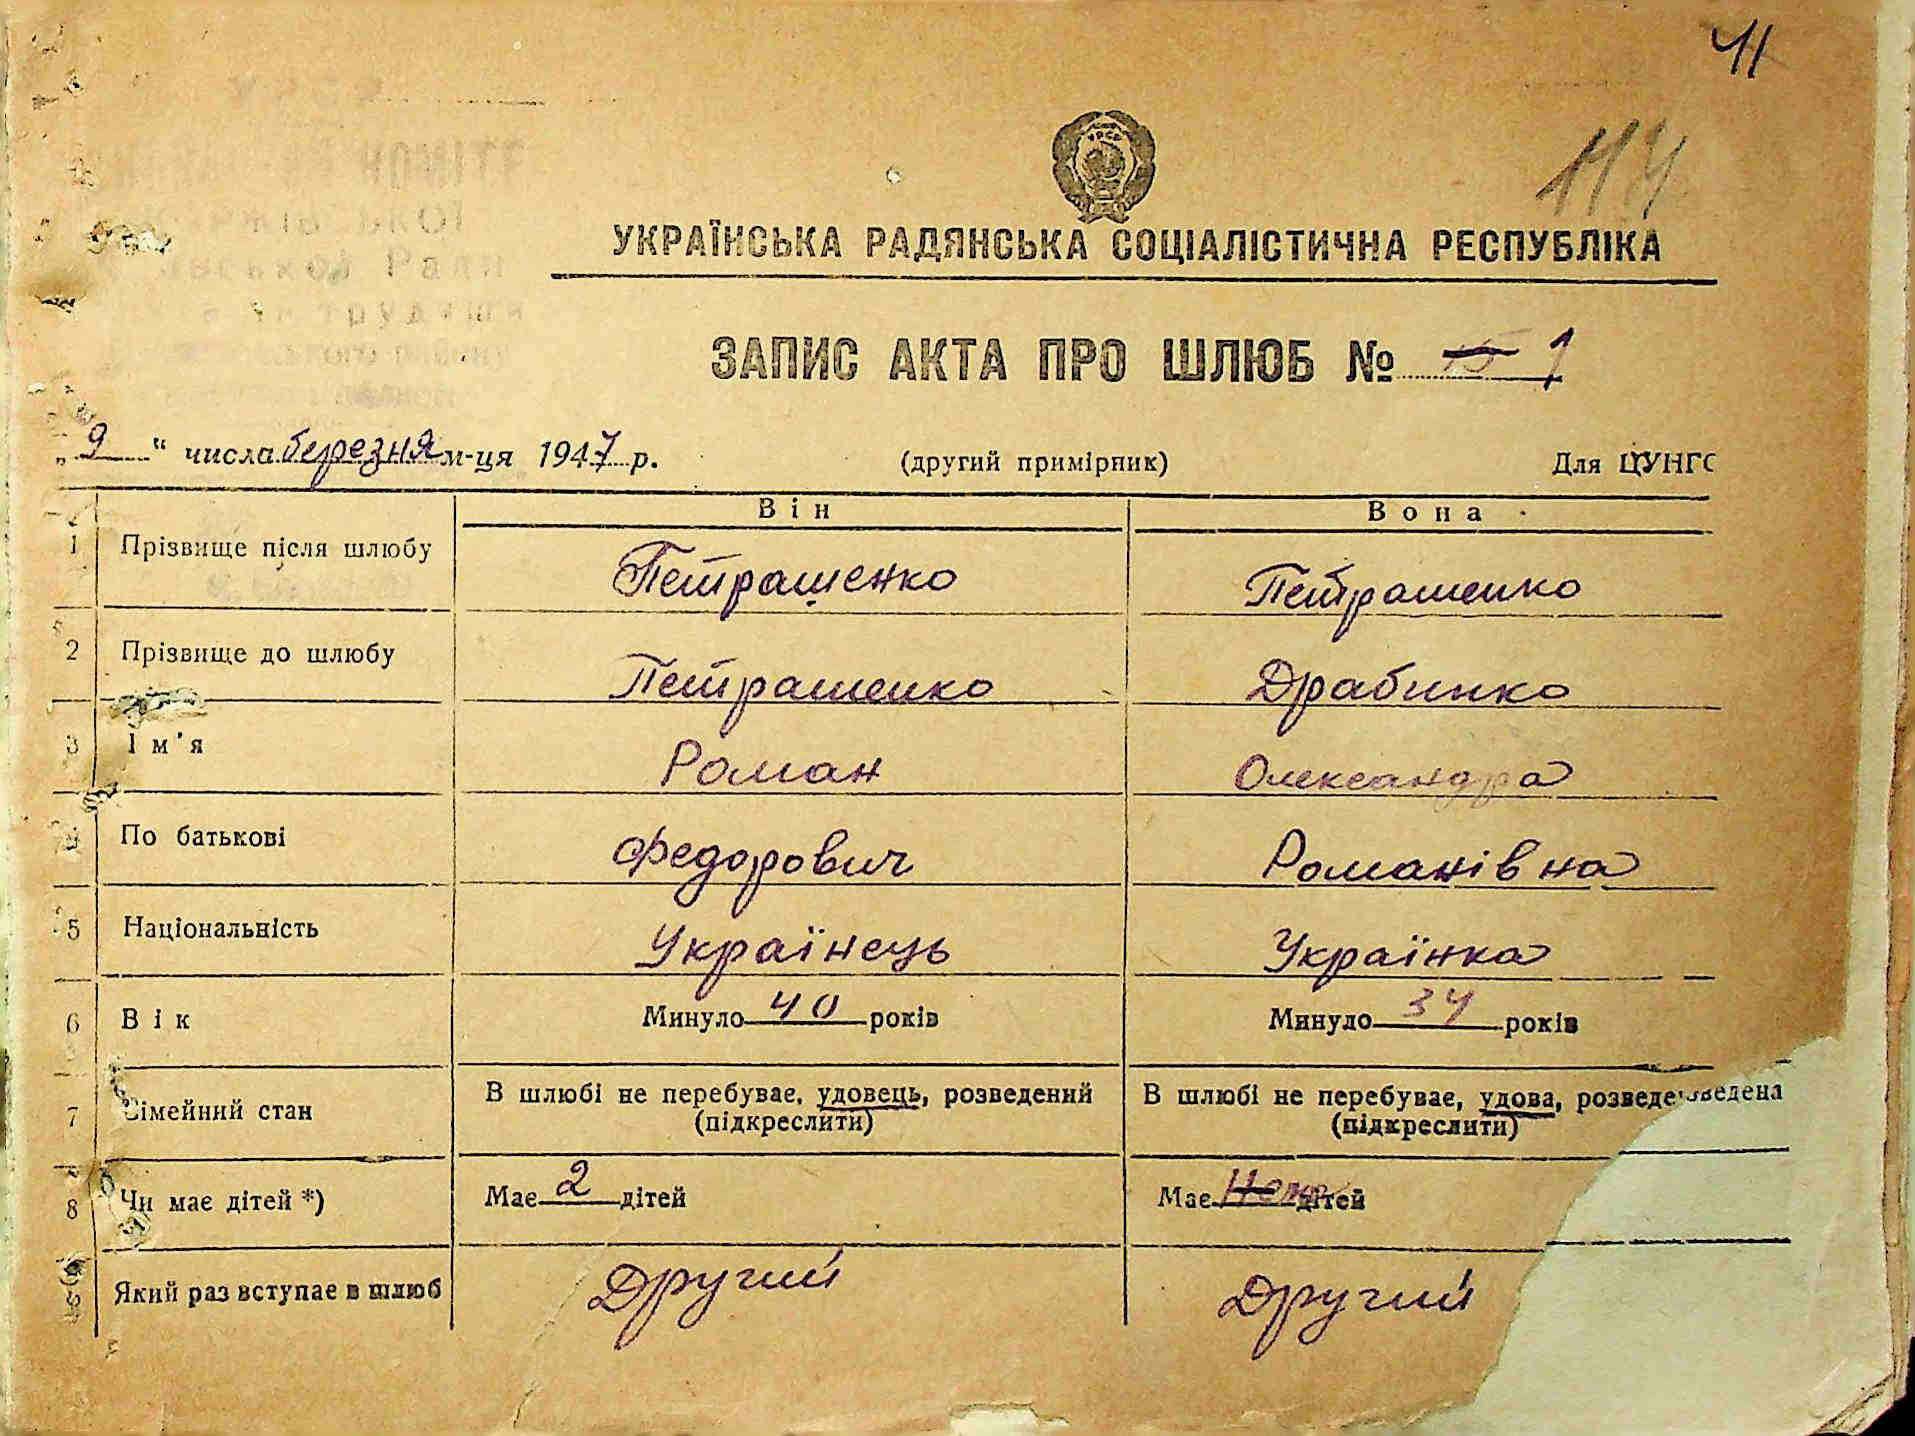 41
114
УРСР
УКРАЇНСЬКА РАДЯНСЬКА СОЦІАЛІСТИЧНА РЕСПУБЛІКА
ЗАПИС АКТА ПРО ШЛЮБ № 15 1
„ 9 “ числа березня м-ця 1947 р. (другий примірник) Для ЦУНГО
Він Вона
1 Прізвище після шлюбу Петрашенко Петрашенко
2 Прізвище до шлюбу Петрашенко Драбинко
3 Ім'я Роман Олександра
4 По батькові Федорович Романівна
5 Національність Українець Українка
6 Вік Минуло 40 років Минуло 34 років
7 Сімейний стан В шлюбі не перебуває, удовець, розведений В шлюбі не перебуває, удова, розведена
(підкреслити) (підкреслити)
8 Чи має дітей *) Має 2 дітей Має Нема дітей
9 Який раз вступає в шлюб Другий Другий